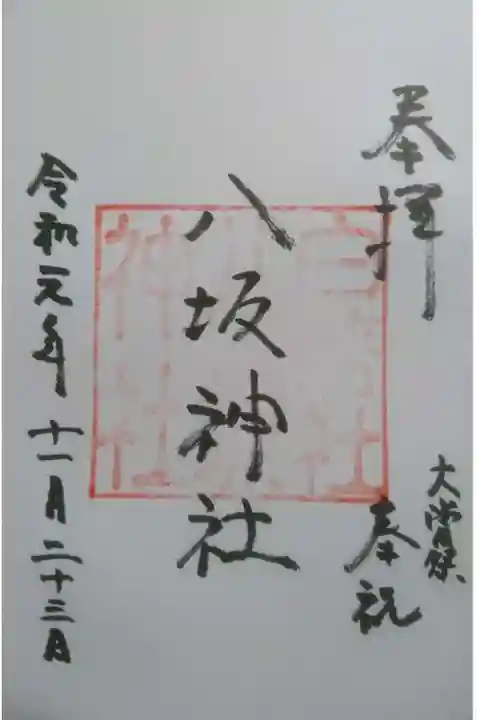 奉拝
大嘗祭
奉祝
八坂神社
令和元年十一月二十三日